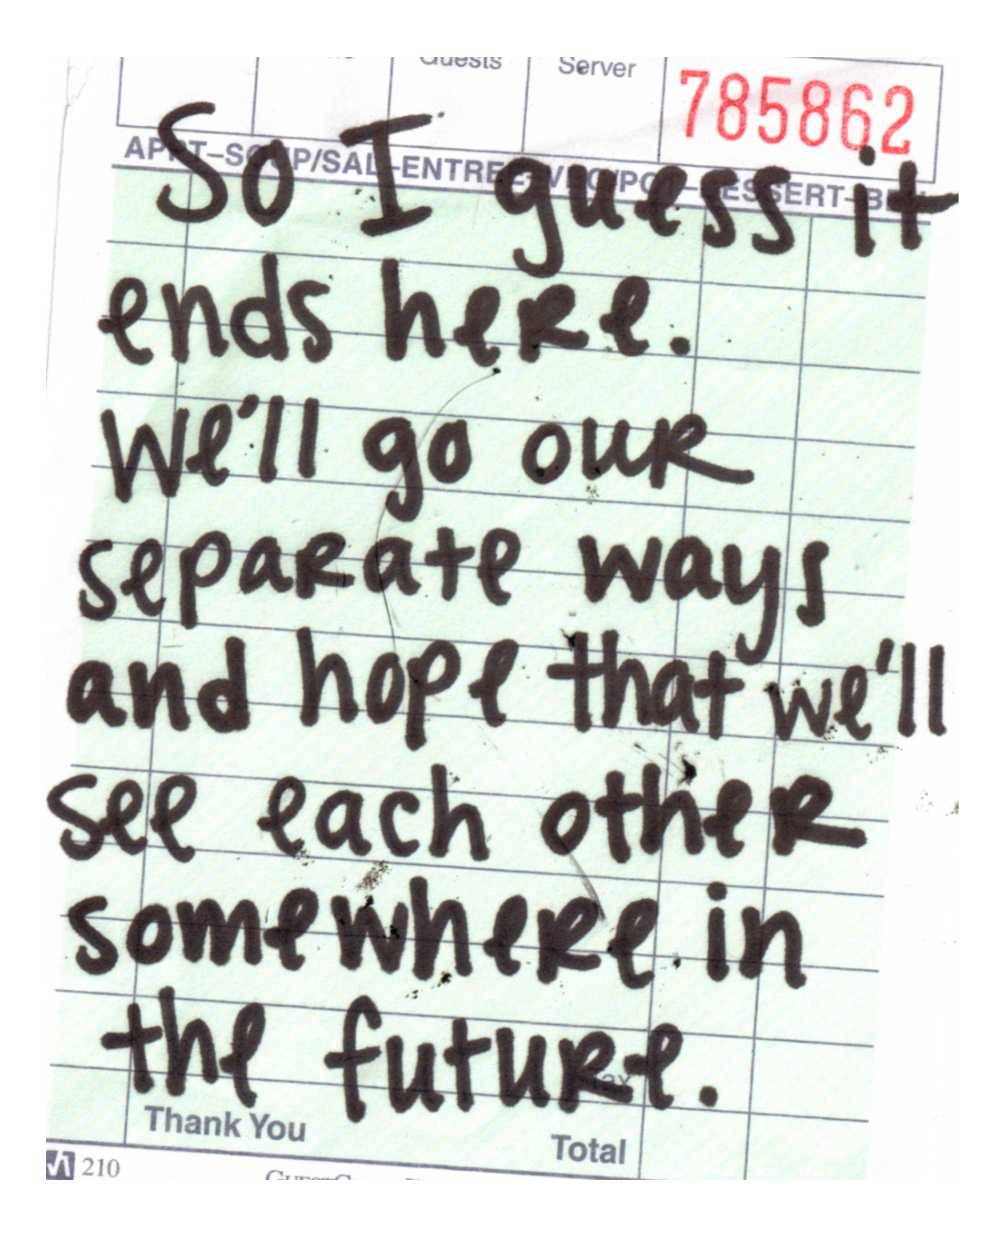 Guests Server 785862
APPT-SOUP/SAL-ENTREE-VEG/POT-DESSERT-BEV
So I guess it
ends here.
We'll go our
separate ways
and hope that we'll
see each other
somewhere in
the future.
Tax
Thank You Total
210